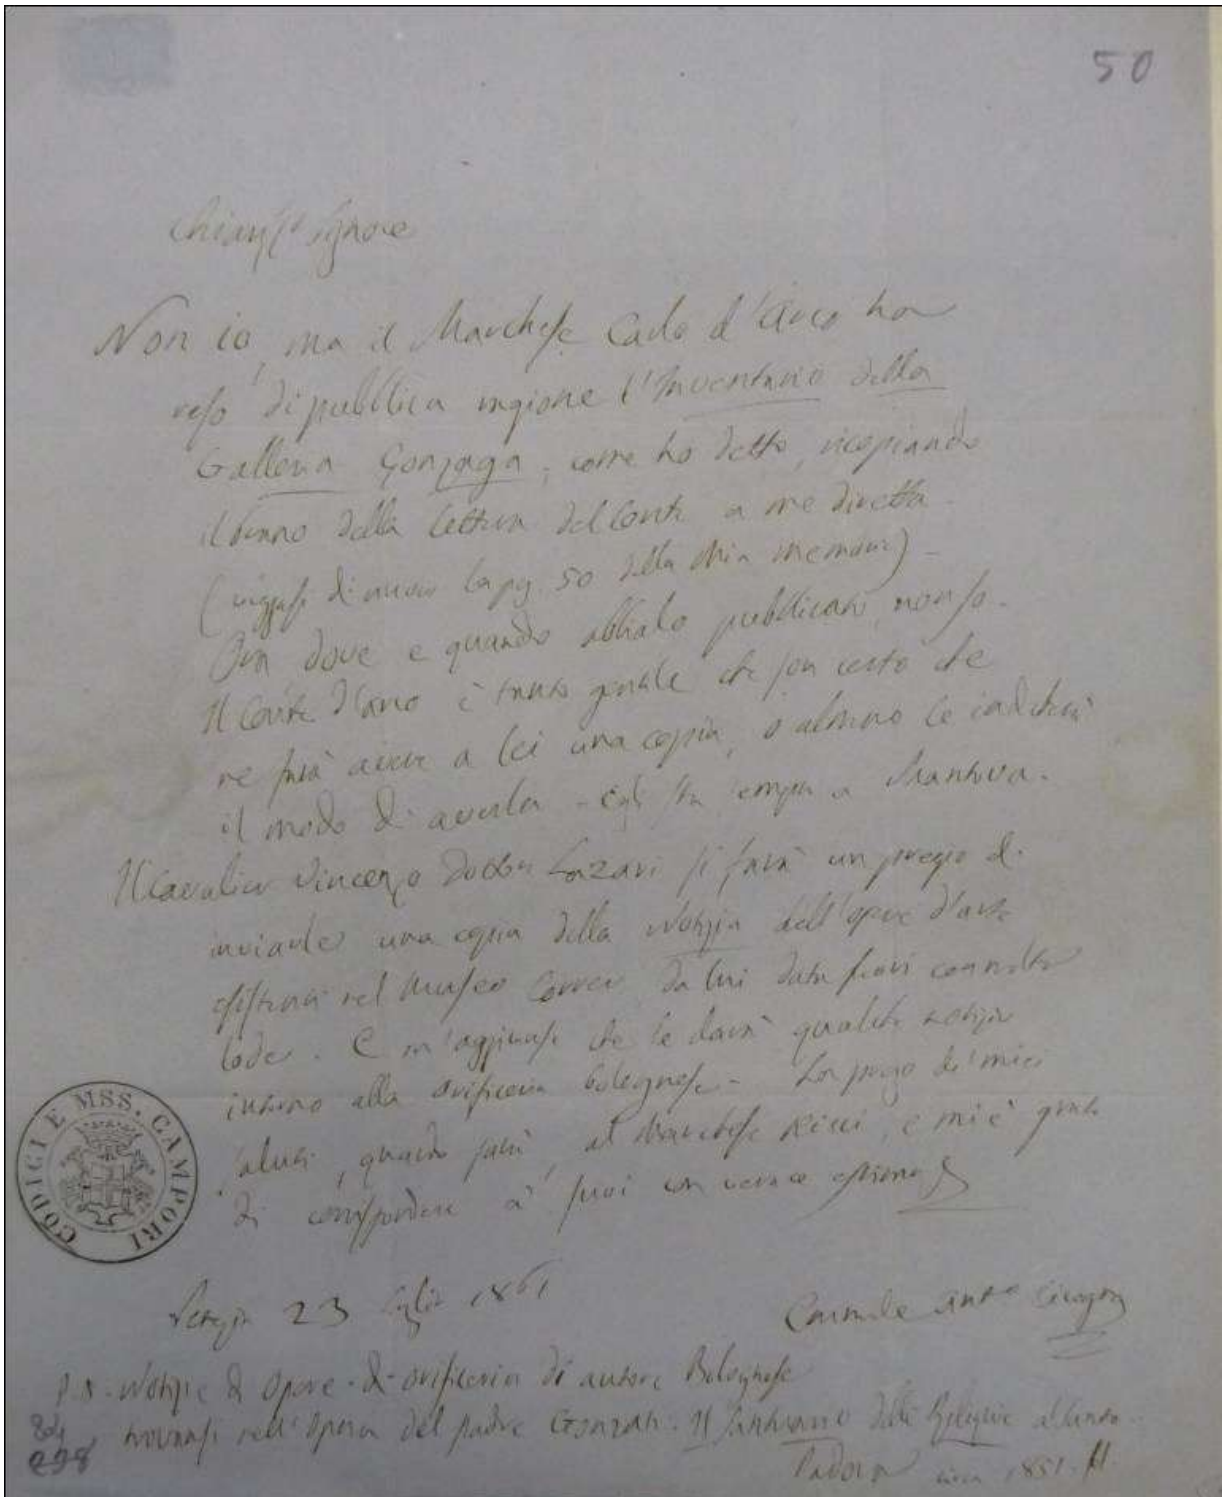 50
Chiar.mo Signore
Non io, ma il Marchese Carlo d'Arco ha
reso di pubblica ragione l'Inventario della
Galleria Gonzaga, come ho detto, ricopiando
il brano della lettera del Conte a me diretta.
(veggasi di nuovo la pg. 50 della mia memoria) -
Ora dove e quando abbialo pubblicato, non so.
Il Conte d'Arco è tanto gentile che son certo che
ne farà avere a lei una copia, o almeno le indicherà
il modo di averla - Egli sta sempre a Mantova.
Il Cavalier Vincenzo Dottor Lazari si farà un pregio di
inviarle una copia della Notizia dell'opere d'arte
esistenti nel Museo Correr da lui data fuori con molta
lode. E m'aggiunse che le darà qualche notizia
intorno alla orificeria bolognese. La prego de' miei
saluti, quando sarà, al Marchese Ricci, e mi è grato
di corrispondere a' suoi con verace estimaz.
Venezia 23 luglio 1861
Emmanele Ant.o Cicogna
P.S. Notizie di opere di orificeria di autore Bolognese
trovansi nell'opera del padre Gonzati. Il Santuario delle Reliquie al Santo.
Padova circa 1851. fl.
CODICI E MSS. CAMPORI
898